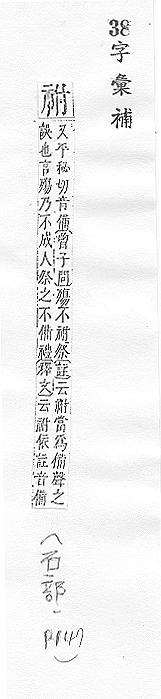 38字彙補
祔
又平秘切音備曾子問殤不祔祭註云祔當爲備聲之
誤也言殤乃不成人祭之不備禮釋文云祔依註音備
(石部,
P.147)